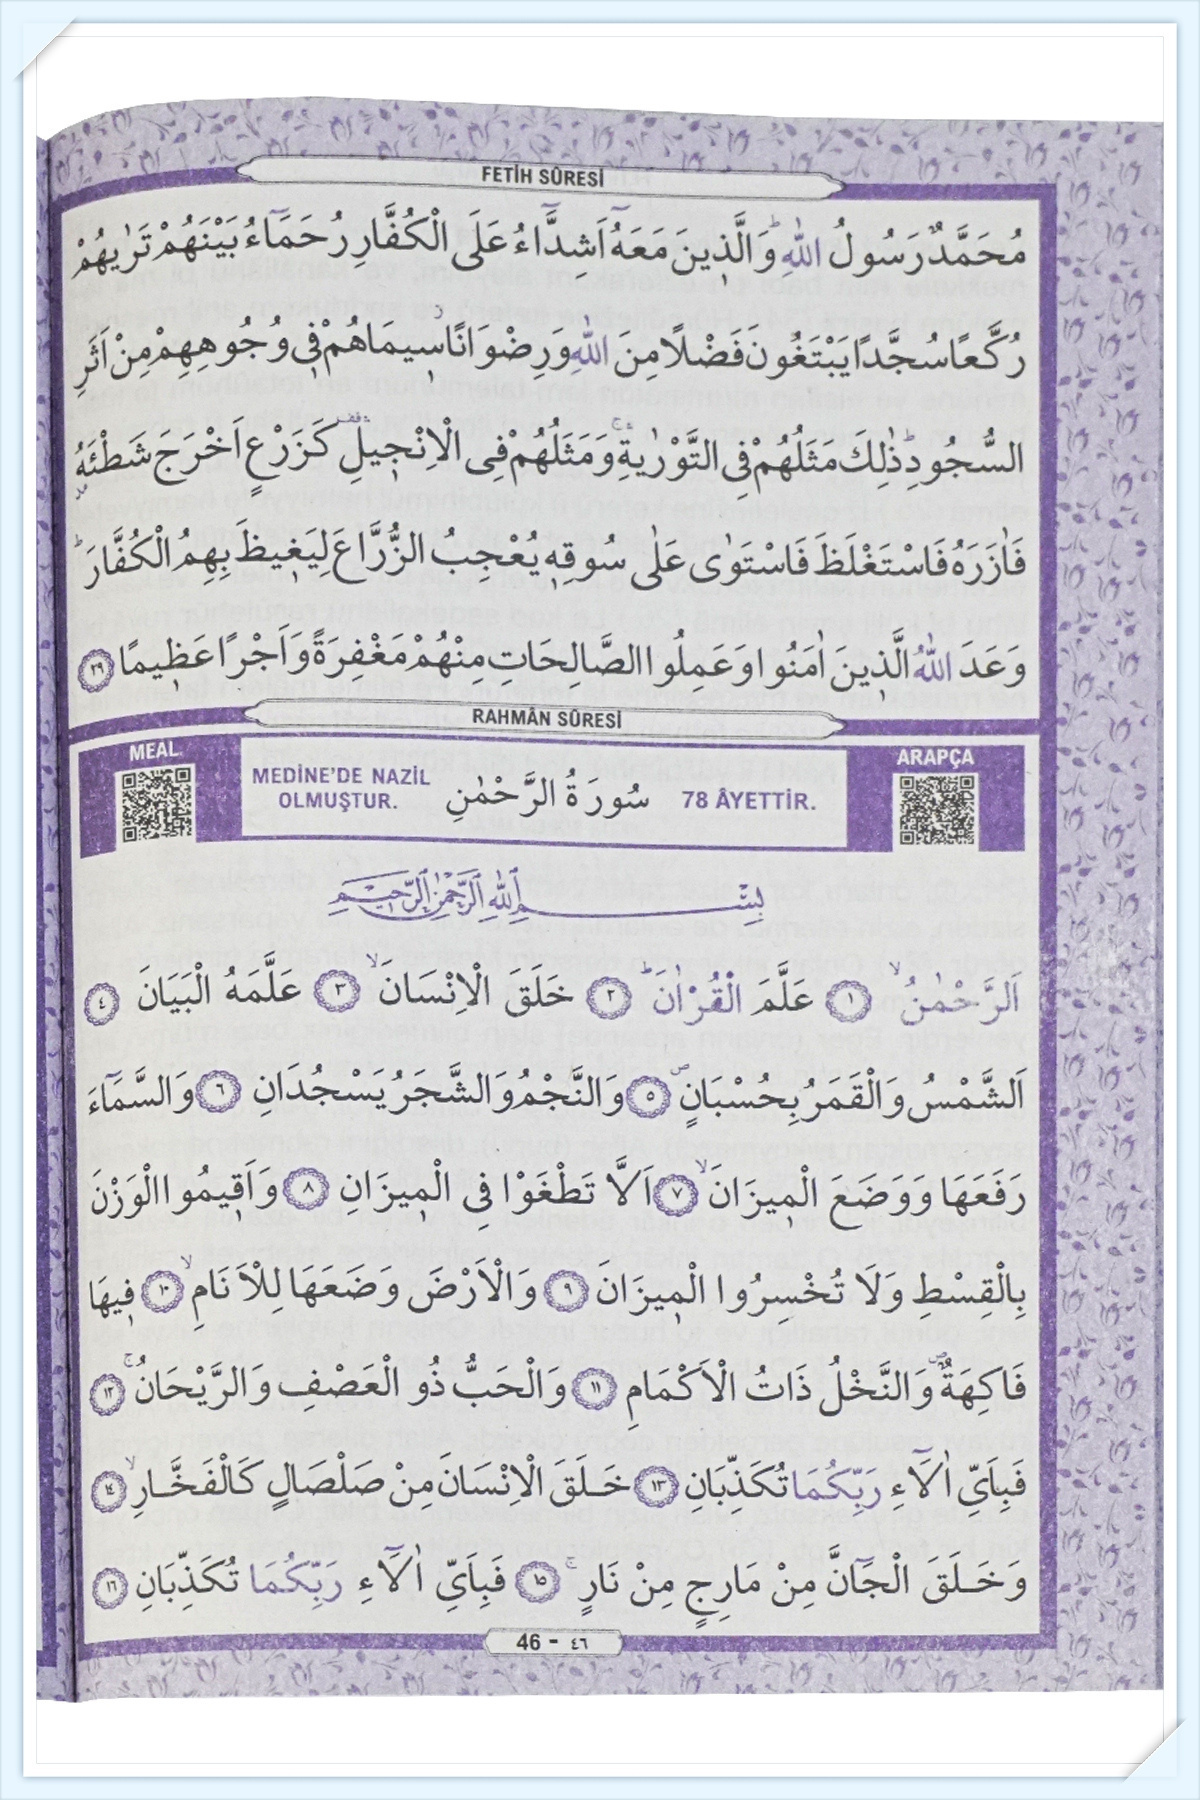 FETİH SÛRESİ
مُحَمَّدٌ رَسُولُ اللّٰهِۜ وَالَّذ۪ينَ مَعَهُٓ اَشِدَّٓاءُ عَلَى الْكُفَّارِ رُحَمَٓاءُ بَيْنَهُمْ تَرٰيهُمْ
رُكَّعًا سُجَّدًا يَبْتَغُونَ فَضْلًا مِنَ اللّٰهِ وَرِضْوَانًاۘ س۪يمَاهُمْ ف۪ي وُجُوهِهِمْ مِنْ اَثَرِ
السُّجُودِۜ ذٰلِكَ مَثَلُهُمْ فِي التَّوْرٰيةِۚ وَمَثَلُهُمْ فِي الْاِنْج۪يلِ كَزَرْعٍ اَخْرَجَ شَطْـَٔهُ
فَاٰزَرَهُ فَاسْتَغْلَظَ فَاسْتَوٰى عَلٰى سُوقِه۪ يُعْجِبُ الزُّرَّاعَ لِيَغ۪يظَ بِهِمُ الْكُفَّارَۜ
وَعَدَ اللّٰهُ الَّذ۪ينَ اٰمَنُوا وَعَمِلُوا الصَّالِحَاتِ مِنْهُمْ مَغْفِرَةً وَاَجْرًا عَظ۪يمًا ٢٩
RAHMÂN SÛRESİ
MEAL
ARAPÇA
MEDİNE'DE NAZİL
OLMUŞTUR.
سُورَةُ الرَّحْمٰنِ
78 ÂYETTİR.
بِسْمِ اللّٰهِ الرَّحْمٰنِ الرَّح۪يمِ
اَلرَّحْمٰنُۙ ١ عَلَّمَ الْقُرْاٰنَۜ ٢ خَلَقَ الْاِنْسَانَۙ ٣ عَلَّمَهُ الْبَيَانَ ٤
اَلشَّمْسُ وَالْقَمَرُ بِحُسْبَانٍۖ ٥ وَالنَّجْمُ وَالشَّجَرُ يَسْجُدَانِ ٦ وَالسَّمَٓاءَ
رَفَعَهَا وَوَضَعَ الْم۪يزَانَۙ ٧ اَلَّا تَطْغَوْا فِي الْم۪يزَانِ ٨ وَاَق۪يمُوا الْوَزْنَ
بِالْقِسْطِ وَلَا تُخْسِرُوا الْم۪يزَانَ ٩ وَالْاَرْضَ وَضَعَهَا لِلْاَنَامِۙ ١٠ ف۪يهَا
فَاكِهَةٌۖ وَالنَّخْلُ ذَاتُ الْاَكْمَامِ ١١ وَالْحَبُّ ذُو الْعَصْفِ وَالرَّيْحَانُۚ ١٢
فَبِاَيِّ اٰلَٓاءِ رَبِّكُمَا تُكَذِّبَانِ ١٣ خَلَقَ الْاِنْسَانَ مِنْ صَلْصَالٍ كَالْفَخَّارِۙ ١٤
وَخَلَقَ الْجَٓانَّ مِنْ مَارِجٍ مِنْ نَارٍۚ ١٥ فَبِاَيِّ اٰلَٓاءِ رَبِّكُمَا تُكَذِّبَانِ ١٦
46 - ٤٦